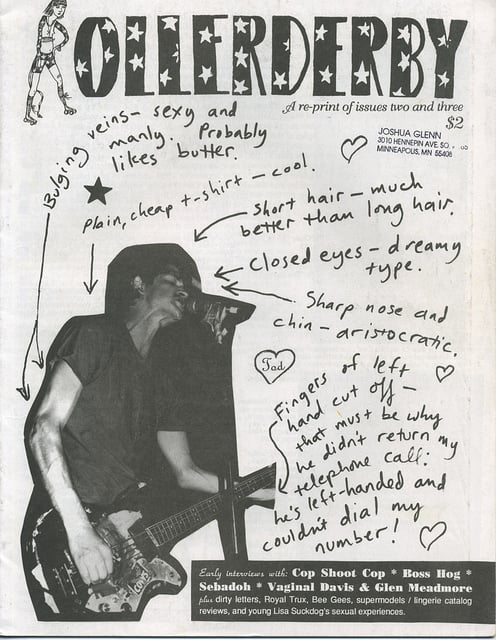 OLLERDERBY
A re-print of issues two and three
$2
JOSHUA GLENN
3010 HENNEPIN AVE. SO.
MINNEAPOLIS, MN 55408
Bulging veins – sexy and
manly. Probably
likes butter.
Plain, cheap t-shirt – cool.
Short hair – much
better than long hair.
Closed eyes – dreamy
type.
Sharp nose and
chin – aristocratic.
Tad
Fingers of left
hand cut off –
that must be why
he didn't return my
telephone call:
he's left-handed and
couldn't dial my
number!
Early interviews with: Cop Shoot Cop * Boss Hog *
Sebadoh * Vaginal Davis & Glen Meadmore
plus dirty letters, Royal Trux, Bee Gees, supermodels / lingerie catalog
reviews, and young Lisa Suckdog's sexual experiences.